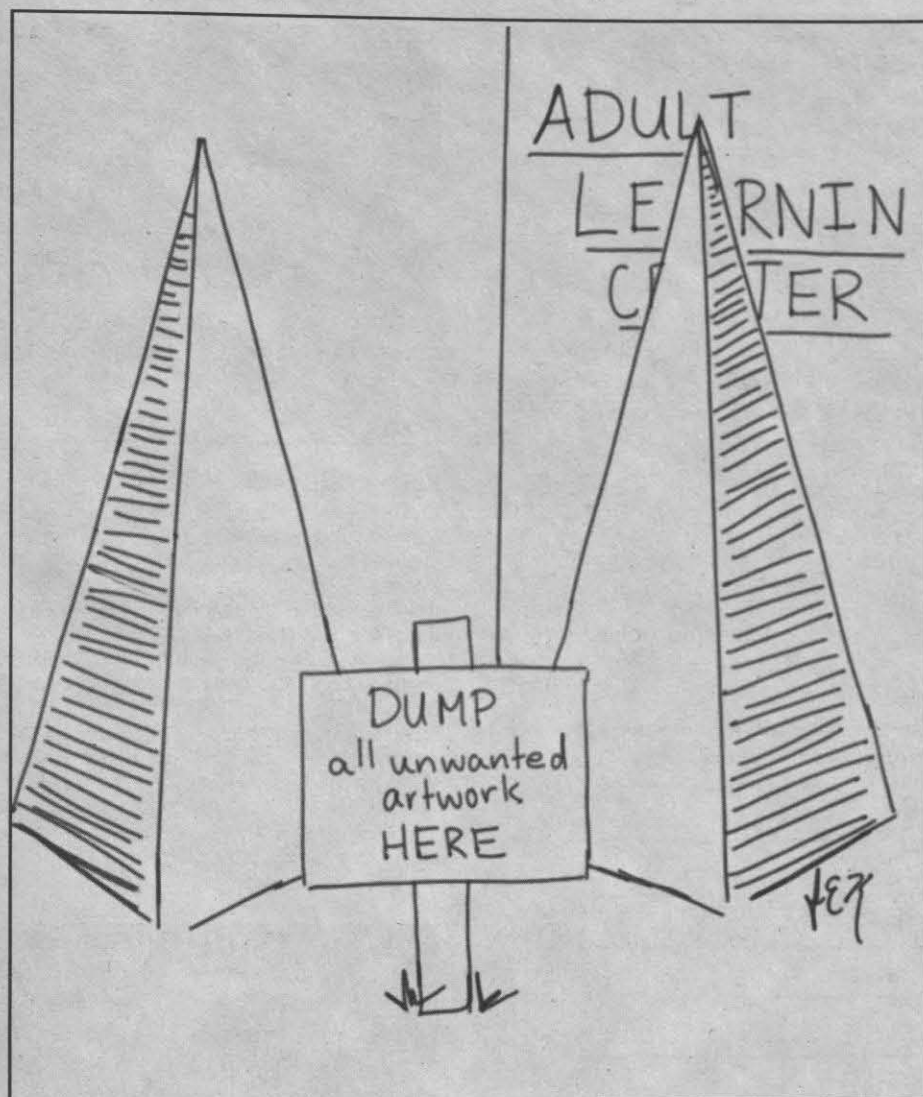 ADULT
LEARNIN
CENTER
DUMP
all unwanted
artwork
HERE